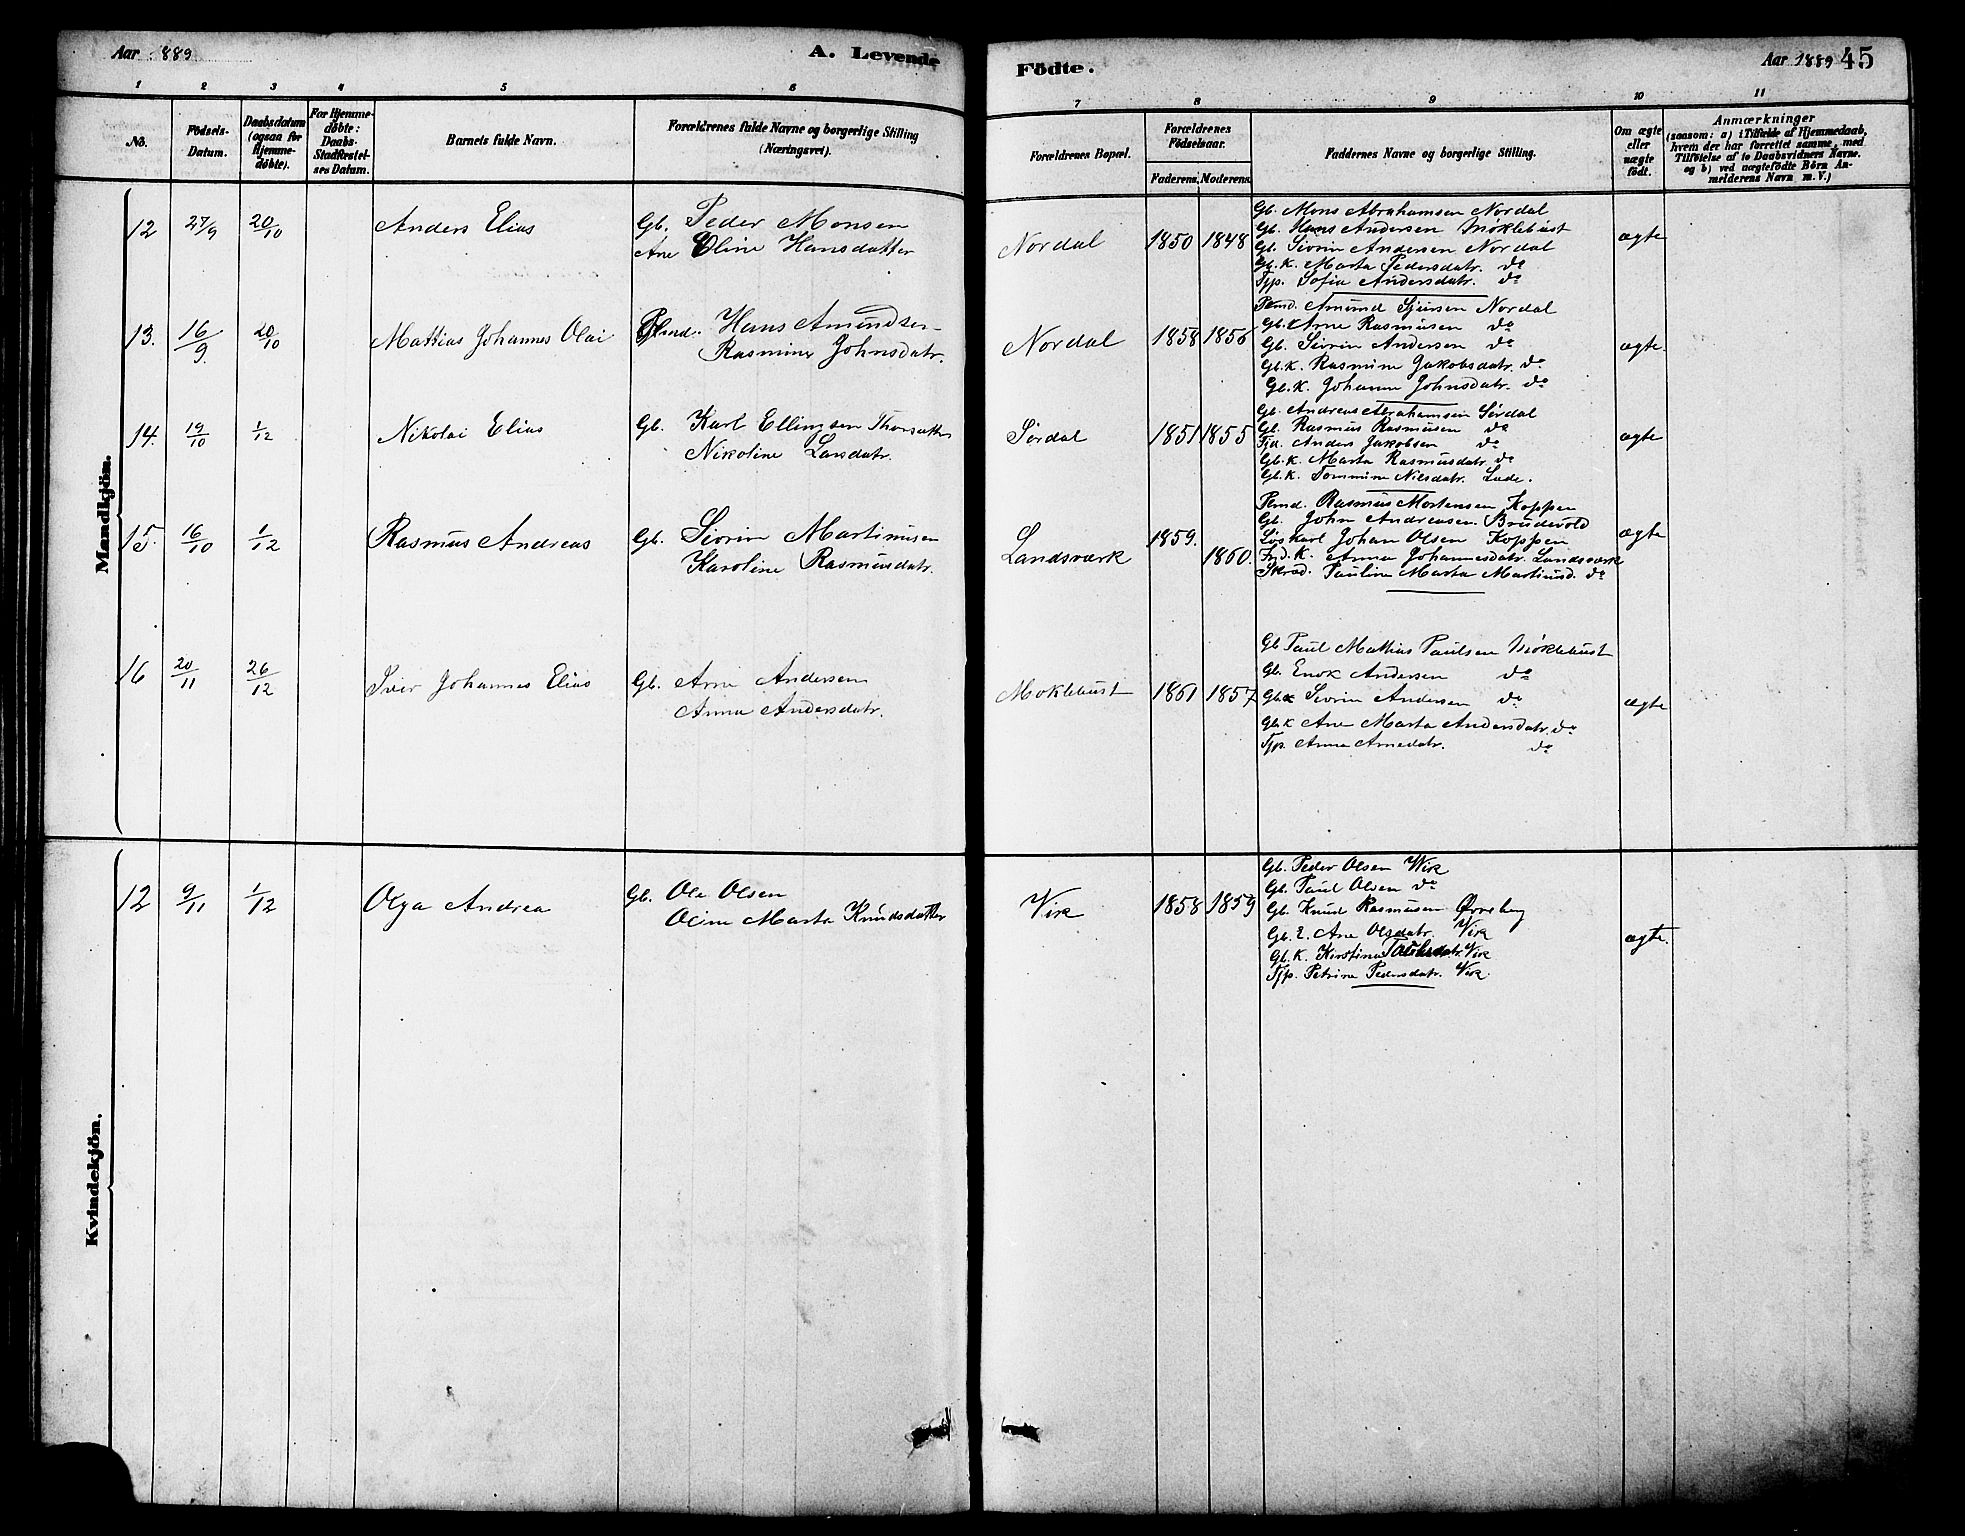 Aar 1889
A. Levende
Födte.
Aar 1889
45
1 2 3 4 5 6
7 8 9 10 11
No.
Födsels-Datum.
Daabsdatum (ogsaa for Hjemme-døbte).
For Hjemme-døbte: Daabs-Stadfæstel-ses Datum.
Barnets fulde Navn.
Forældrenes fulde Navne og borgerlige Stilling
(Næringsvei).
Forældrenes Bopæl.
Forældrenes Födselsaar.
Faderens. Moderens.
Faddernes Navne og borgerlige Stilling.
Om ægte eller uægte födt.
Anmærkninger
(saasom: a) i Tilfælde af Hjemmedaab,
hvem der har forrettet samme, med
Tilföielse af to Daabsvidners Navne.
og b) ved uægtefödte Börn An-
melderens Navn m. V.)
Mandkjön.
12 27/9 20/10 Anders Elias Gb. Peder Monsen
Ane Oline Hansdatter
Nordal 1850 1848
Gb. Mons Abrahamsen Nordal
Gb. Hans Andersen Möklebust
Gb. Sivrin Andersen Nordal
Gb. K. Marta Pedersdatr. do
Tjp. Sofia Andersdatr. do
ægte
13. 16/9 20/10 Mattias Johannes Olai Hans Amundsen
Rasmine Johnsdatr.
Nordal 1858 1856
Amund Sjursen Nordal
Gb. Arne Rasmusen do
Gb. Sivrin Andersen do
Gb. K. Rasmine Jakobsdatr. do
Gb. K. Johanne Johnsdatr. do
ægte.
14. 19/10 1/12 Nikolai Elias Gb. Karl Ellingsen
Nikoline Larsdatr.
Sørdal 1851 1855
Gb. Andreas Abrahamsen Sørdal
Gb. Rasmus Rasmusen do
Anders Jakobsen do
Gb. K. Marta Rasmusdatr. do
Gb. K. Tommine Nilsdatr. Lade.
ægte
15. 16/10 1/12 Rasmus Andreas Gb. Sivrin Martinusen
Karoline Rasmusdatr.
Landsværk 1859. 1860.
Rasmus Mortensen Koppen
Gb. John Andreasen Brudevold
Løskarl Johan Olsen Koppen
Ind. K. Anna Johannesdatr. Landsværk
Pauline Marta Martinusd. do
ægte
16 20/11 26/12 Iver Johannes Elias Gb. Arne Andersen
Anna Andersdatr.
Moklebust 1861 1857
Gb. Paul Mathias Paulsen Möklebust
Gb. Enok Andersen do
Sivrin Andersen do
Gb. K Ane Marta Andersdatr. do
Tjp. Anna Arnedatr. do
ægte
Kvindekjön.
12 9/11 1/12 Olga Andrea Gb. Ole Olsen
Oline Marta Knudsdatter
Vik 1858 1859
Gb. Peder Olsen Vik
Gb. Paul Olsen do
Gb. Knud Rasmusen Øvreberg
Ane Olsdatr. Vik
Gb. K. Kirstine Vik
Tjp. Petrine Pedersdatr. Vik.
ægte.